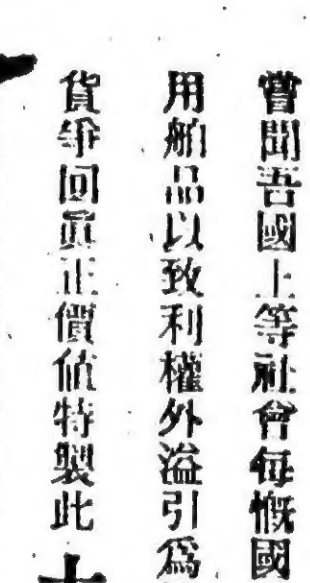 嘗聞吾國上等社會每慨國
用舶品以致利權外溢引爲
貨爭回眞正價値特製此